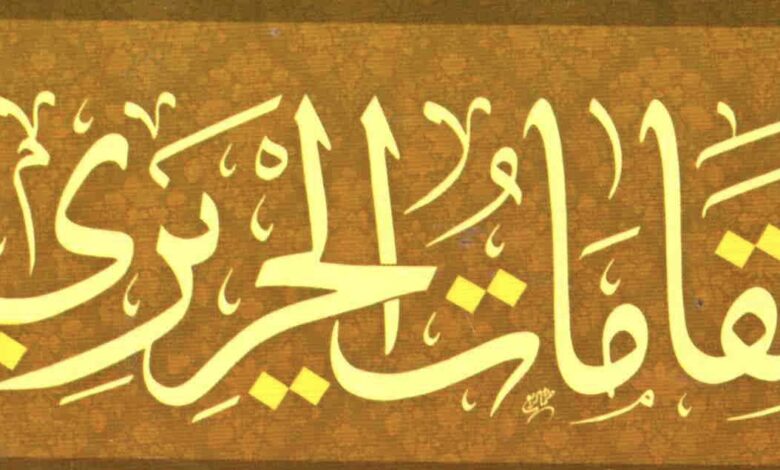 قَامَاتُ الحَرِيرِي